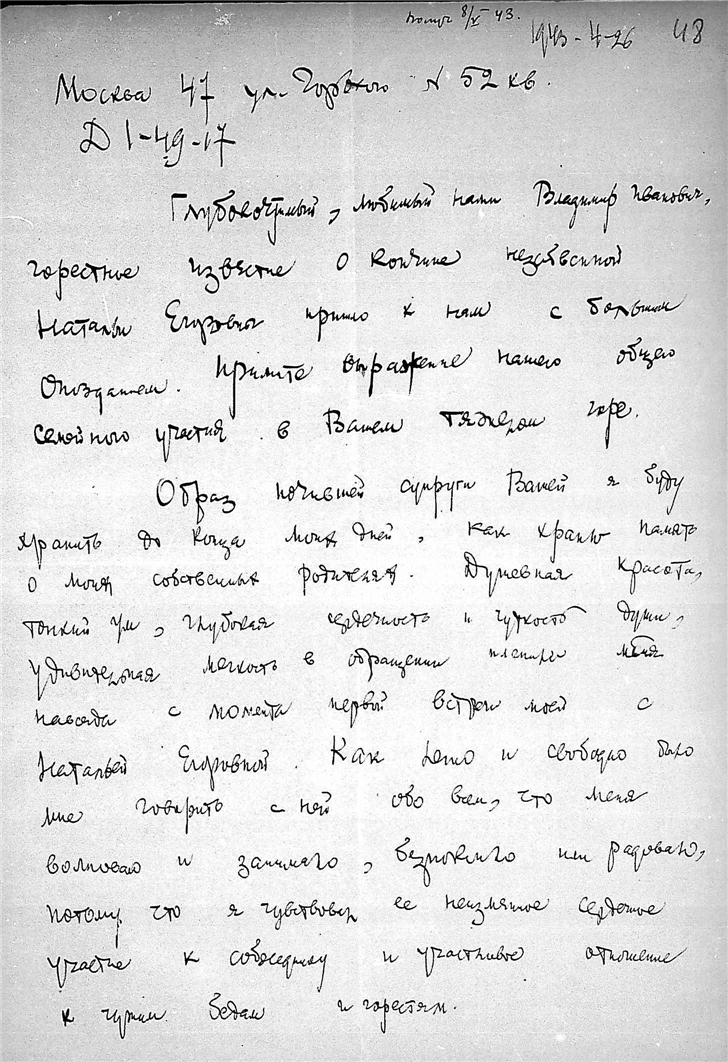 8/X 43.
1943-4-26 48
Москва 47 ул. Горького N 52 кв.
Д 1-49-17
Глубокочтимый, любимый нами Владимир Иванович,
горестное известие о кончине незабвенной
Натальи Егоровны пришло к нам с большим
опозданием. Примите выражение нашего общего
семейного участия в Вашем тяжелом горе.
Образ почившей супруги Вашей я буду
хранить до конца моих дней, как храню память
о моих собственных родителях. Душевная красота,
тонкий ум, глубокая сердечность и чуткость души,
удивительная мягкость в обращении пленили меня
навсегда с момента первой встречи моей с
Натальей Егоровной. Как легко и свободно было
мне говорить с ней обо всем, что меня
волновало и занимало, беспокоило или радовало,
потому что я чувствовал ее неизменное сердечное
участие к собеседнику и участливое отношение
к чужим бедам и горестям.